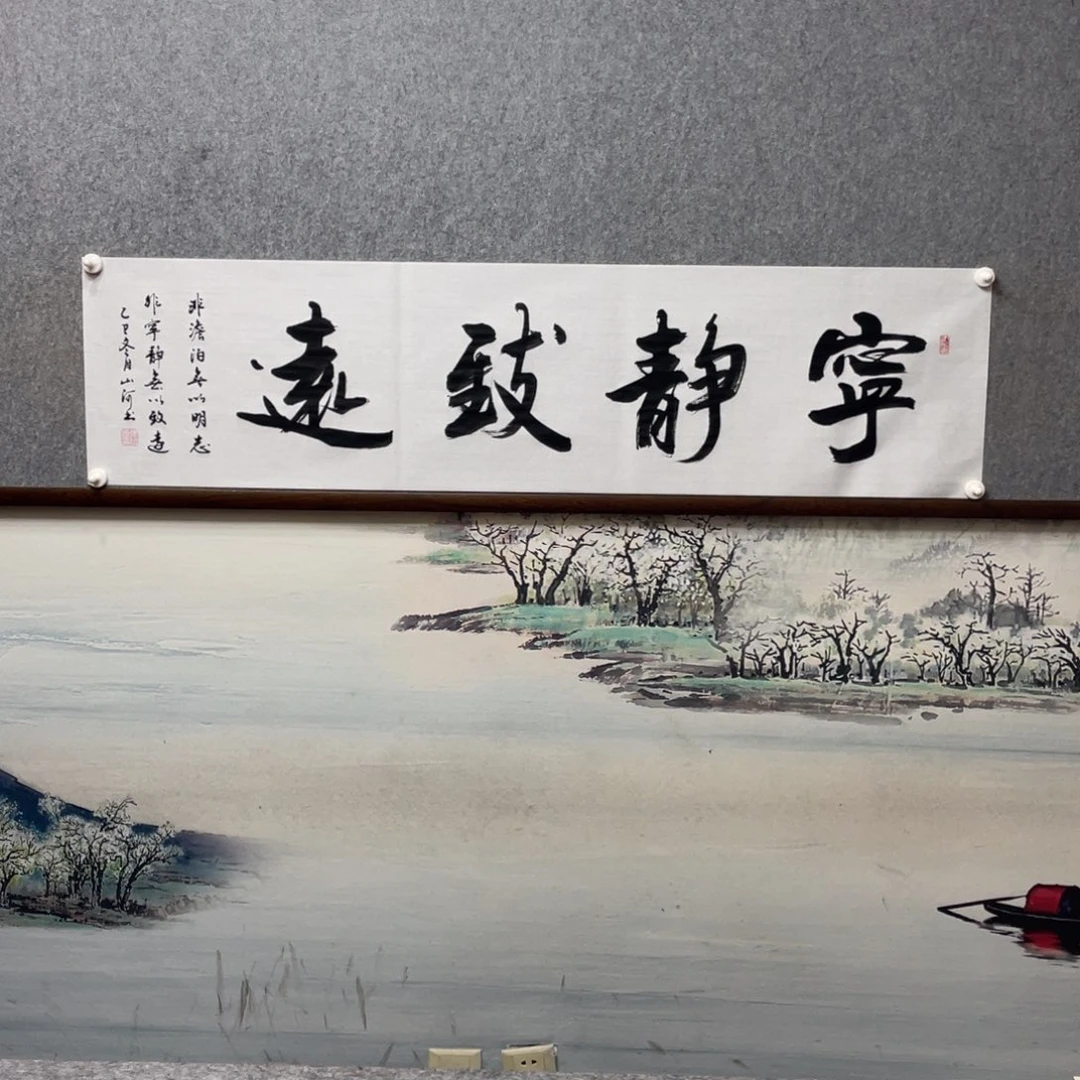 寧靜致遠
非澹泊無以明志
非寧靜無以致遠
乙巳冬月山河書